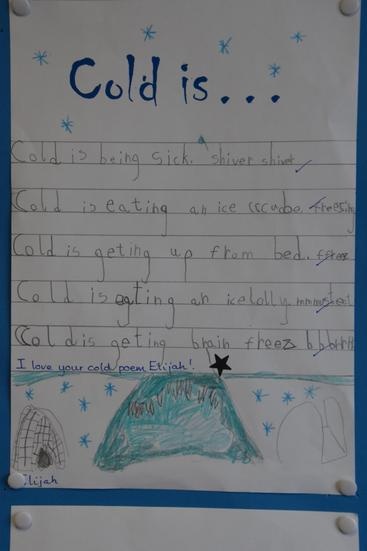 Cold is...
Cold is being sick. shiver shiver
Cold is eating an ice freezing
Cold is geting up from bed.
Cold is eating an icelolly
Cold is geting brain freez
I love your cold poem Elijah!
Elijah